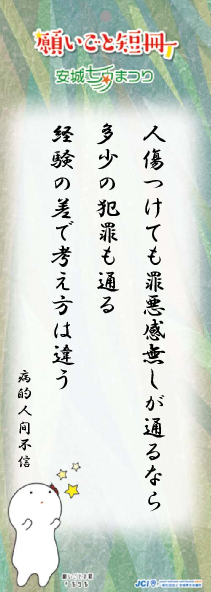 願いごと短冊
安城七夕まつり
人傷つけても罪悪感無しが通るなら
多少の犯罪も通る
経験の差で考え方は違う
病的人间不信
JCI